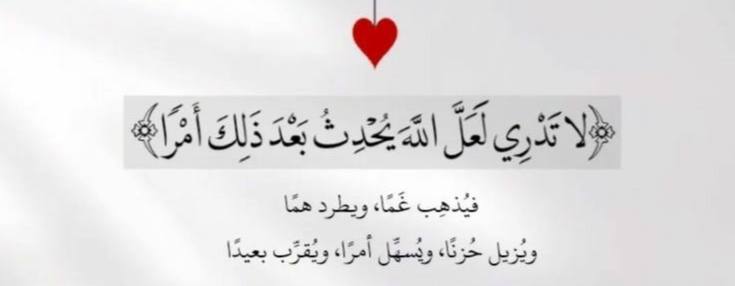 ﴿لا تَدْرِي لَعَلَّ اللَّهَ يُحْدِثُ بَعْدَ ذَلِكَ أَمْرًا﴾
فيُذهِب غَمًا، ويطرد همًا
ويُزيل حُزنًا، ويُسهِّل أمرًا، ويُقرِّب بعيدًا